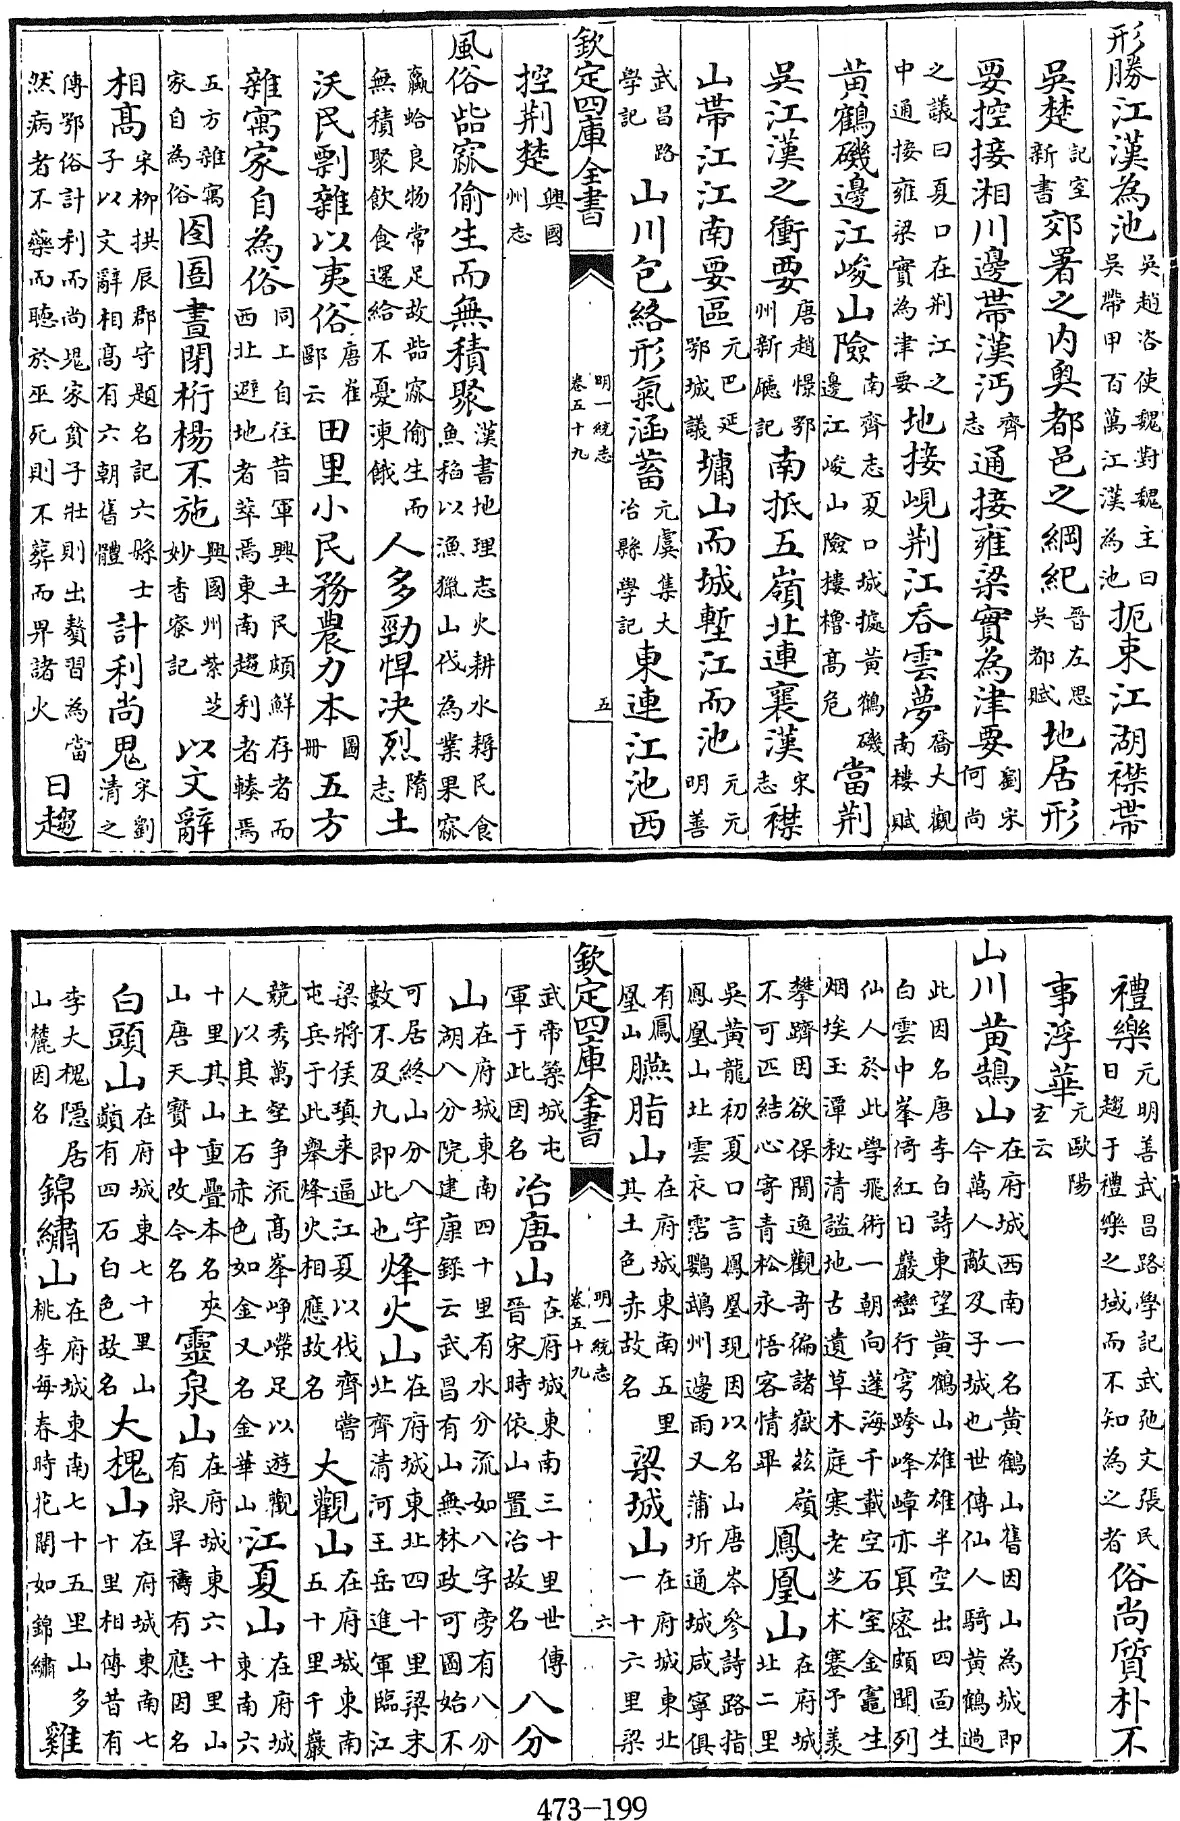 形勝江漢為池吳趙洛使魏對魏主曰吳帶甲百萬江漢為池扼束江湖襟帶
吳楚記室新書郊署之内奥都邑之綱紀晉左思吳都賦地居形
要控接湘川邊帶漢沔齊志通接雍梁實為津要劉宋何尚
之議曰夏口在荆江之中通接雍梁實為津要地接峴荆江呑雲夢喬大觀南樓賦
黄鶴磯邊江峻山險南齊志夏口城據黄鶴磯邊江峻山險樓櫓高危當荆
吳江漢之衝要唐趙憬鄂州新廳記南抵五嶺北連襄漢宋志襟
山帶江江南要區元巴延鄂城議墉山而城塹江而池元元明善
武昌路學記山川包絡形氣涵蓄元虞集大冶縣學記東連江池西
欽定四庫全書 明一統志卷五十九 五
控荆楚興國州志
風俗呰窳偷生而無積聚漢書地理志火耕水耨民食魚稻以漁獵山伐為業果窳
蠃蛤良物常足故呰窳偷生而無積聚飲食還給不憂凍餓人多勁悍决烈隋志土
沃民剽雜以夷俗唐崔郾云田里小民務農力本圖冊五方
雜寓家自為俗同上自往昔軍興土民頗鮮存者而西北避地者萃焉東南趨利者輳焉
五方雜寓家自為俗囹圄晝閉桁楊不施興國州紫芝妙香寮記以文辭
相高宋柳拱辰郡守題名記六縣士子以文辭相高有六朝舊體計利尚鬼宋劉清之
傳鄂俗計利而尚鬼家貧子壯則出贅習為當然病者不藥而聽於巫死則不葬而畀諸火日趨
禮樂元明善武昌路學記武弛文張民日趨于禮樂之域而不知為之者俗尚質朴不
事浮華元歐陽玄云
山川黄鵠山在府城西南一名黄鶴山舊因山為城即今萬人敵及子城也世傳仙人騎黄鶴過
此因名唐李白詩東望黄鶴山雄雄半空出四面生白雲中峯倚紅日巖巒行穹跨峰嶂亦冥密頗聞列
仙人於此學飛術一朝向蓬海千載空石室金竈生烟埃玉潭秘清謐地古遺草木庭寒老芝术蹇予羡
攀躋因欲保閒逸觀奇徧諸嶽茲嶺不可匹結心寄青松永悟客情畢鳳凰山在府城北二里
吳黄龍初夏口言鳳凰現因以名山唐岑參詩路指鳳凰山北雲衣霑鸚鵡州邊雨又蒲圻通城咸寧俱
有鳳凰山臙脂山在府城東南五里其土色赤故名梁城山在府城東北一十六里梁
欽定四庫全書 明一統志卷五十九 六
武帝築城屯軍于此因名冶唐山在府城東南三十里世傳晉宋時依山置冶故名八分
山在府城東南四十里有水分流如八字旁有八分湖八分院建康録云武昌有山無林政可圖始不
可居終山分八字數不及九即此也烽火山在府城東北四十里梁末北齊清河王岳進軍臨江
梁將侯瑱来逼江夏以伐齊嘗屯兵于此舉烽火相應故名大觀山在府城東南五十里千巖
競秀萬壑争流髙峯崢嶸足以遊觀人以其土石赤色如金又名金華山江夏山在府城東南六
十里其山重疊本名夾山唐天寳中改今名靈泉山在府城東六十里山有泉旱禱有應因名
白頭山在府城東七十里山顛有四石白色故名大槐山在府城東南七十里相傳昔有
李大槐隠居山麓因名錦繡山在府城東南七十五里山多桃李每春時花開如錦繡雞
473-199